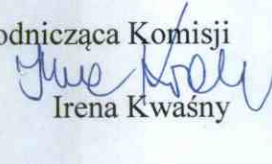 odnicząca Komisji
Irena Kwaśny